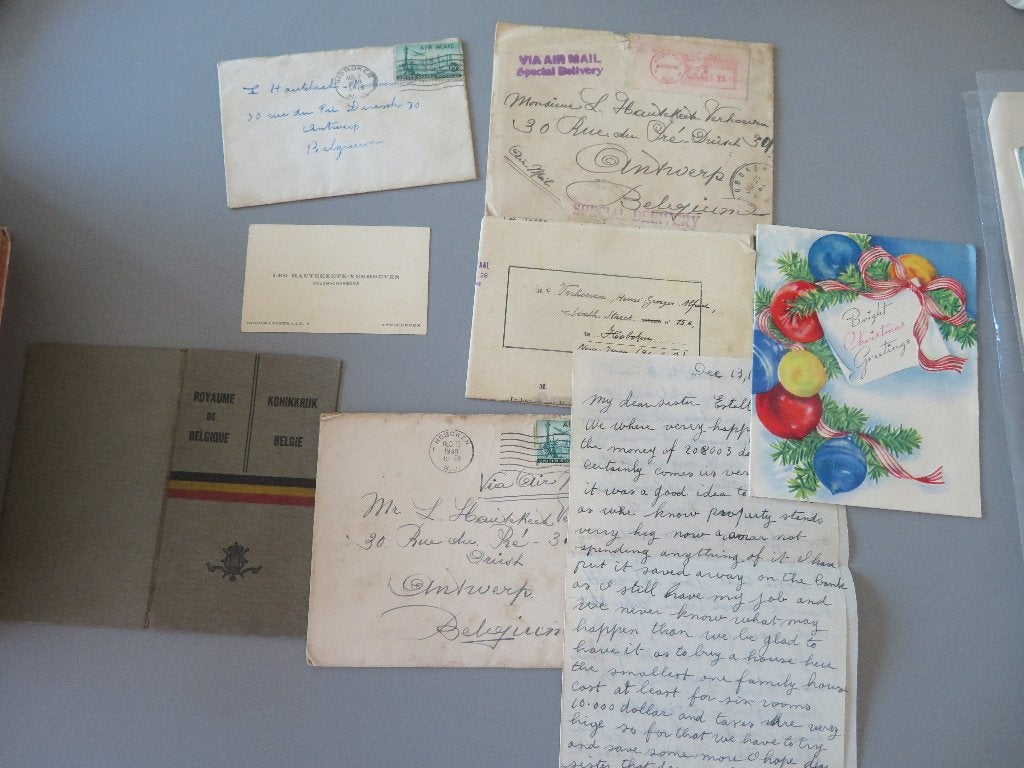 AIR MAIL
HOBOKEN
L Hautekeet
30 rue du Pré Driesch 30
Antwerp
Belgium
VIA AIR MAIL
Special Delivery
Monsieur L. Hautekeete Verhoeven
30 Rue du Pré Driesch 30
Antwerp
Air Mail
Belgium
SPECIAL DELIVERY
LEO HAUTEKEETE-VERHOEVEN
ANTWERPEN
Verhoeven, Henri Georges Alfred,
Ninth Street 156,
to Hoboken
New Jersey
ROYAUME
DE
BELGIQUE
KONINKRIJK
BELGIE
HOBOKEN
Via Air
Mr L. Hautekeet
30. Rue du Pré - 30
Driesch
Antwerp.
Belgium
Bright
Christmas
Greetings
Dec 13,
My dear sister Estell
We where verry happ
the money of 208003 do
Certainly comes us ver
it was a good idea to
as we know property stands
verry hig now a  not
spending anything of it. I have
put it saved away on the banke
as I still have my job and
we never know what may
happen than we be glad to
have it as to buy a house here
the smallest one family house
cost at least for six rooms
10.000 dollar and taxes are very
hige so for that we have to try
and save some more I hope dear
sister that